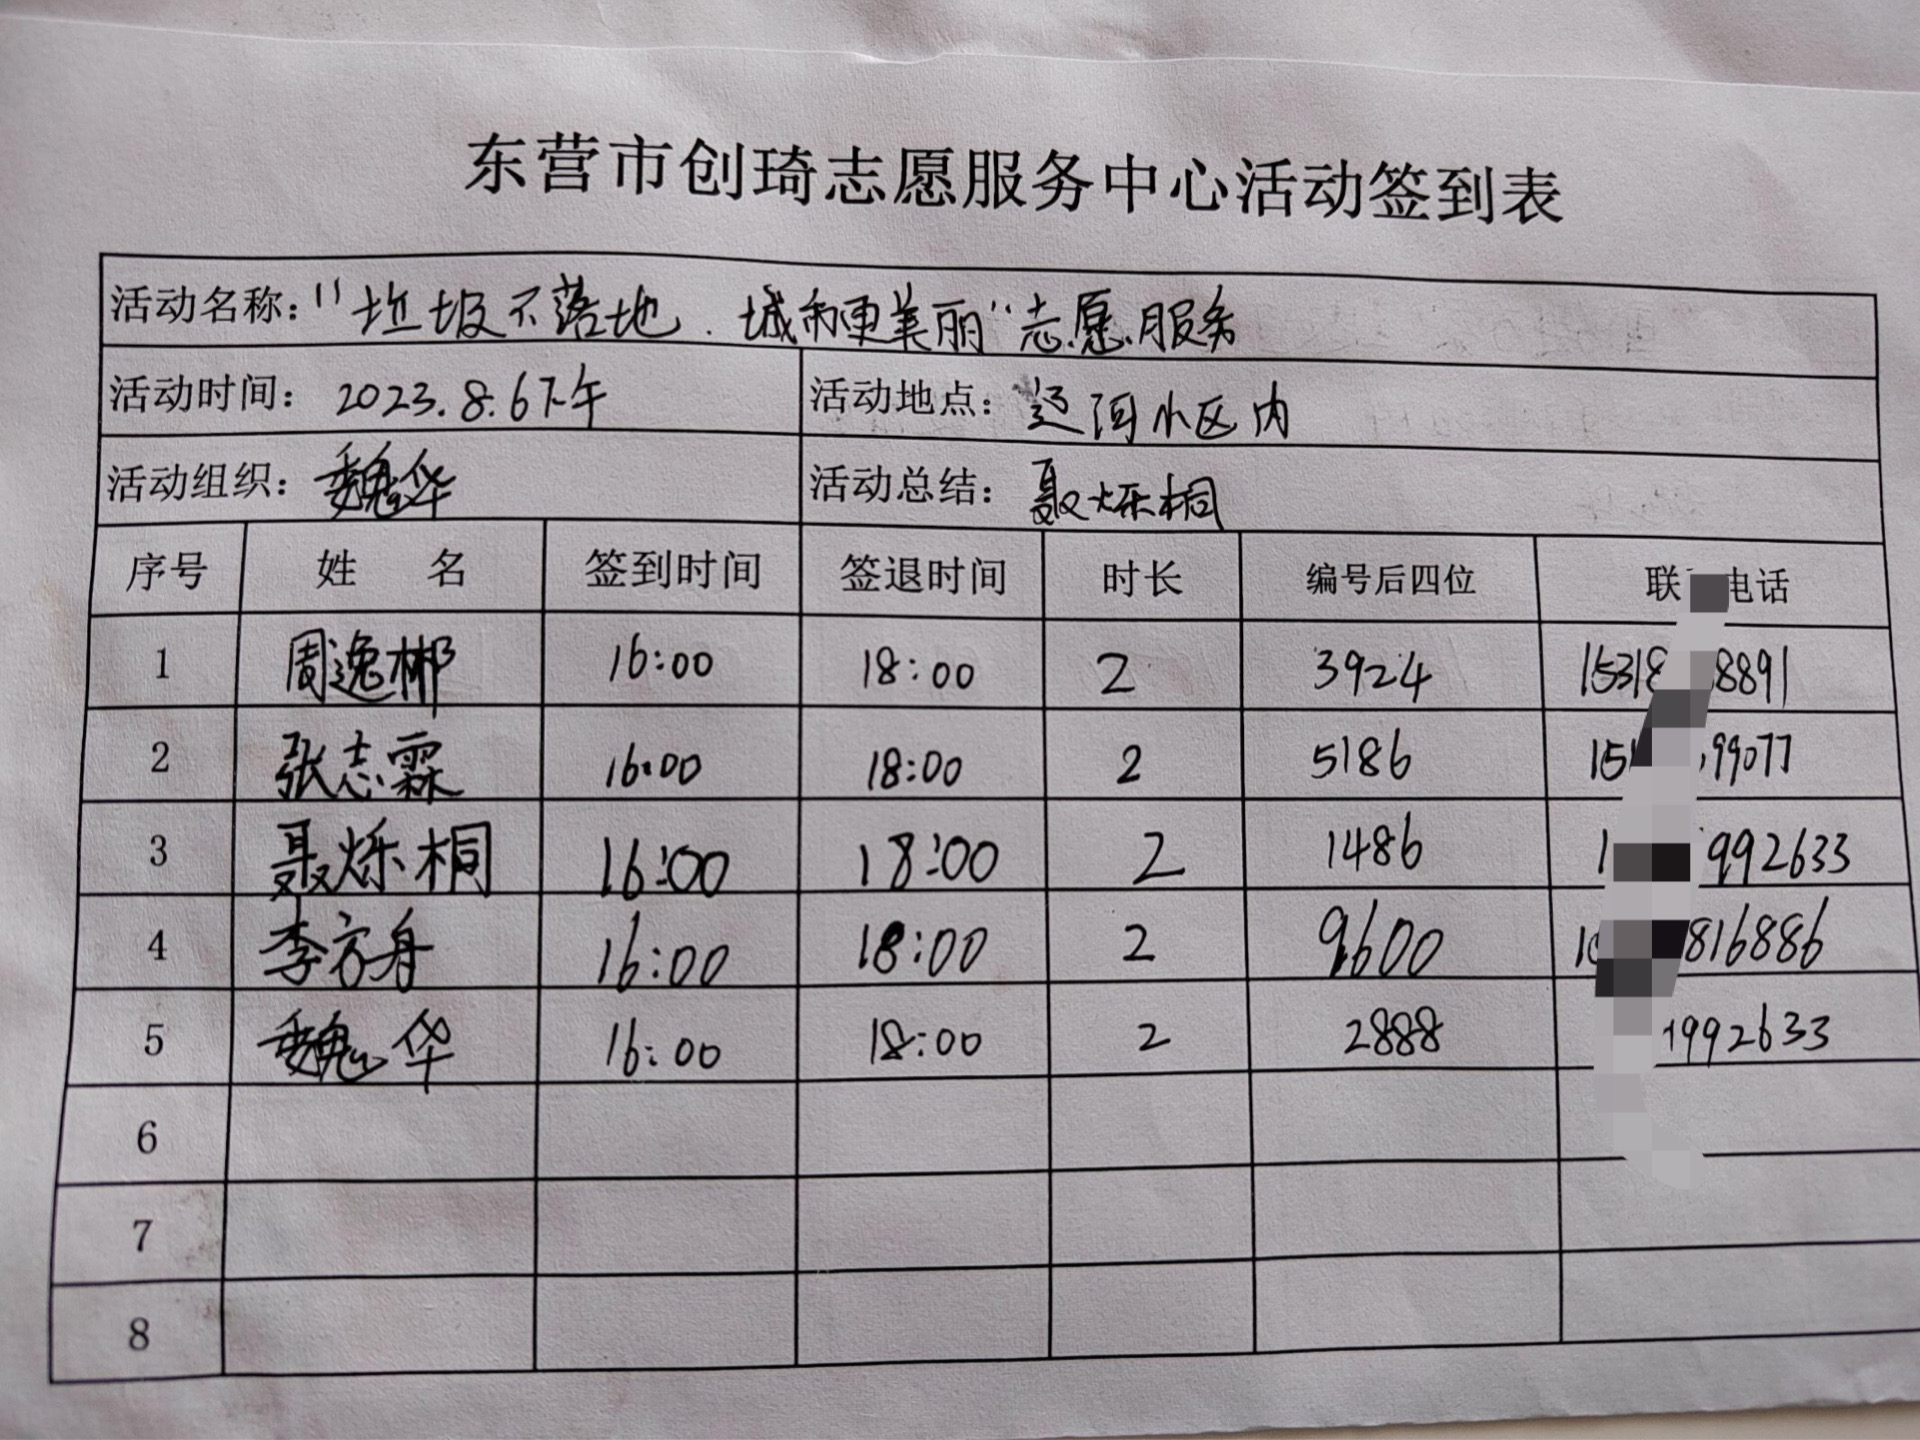 东营市创琦志愿服务中心活动签到表
活动名称："垃圾不落地．城市更美丽"志愿服务
活动时间：2023.8.6下午 活动地点：辽河小区内
活动组织：魏华 活动总结：聂烁桐
序号 姓 名 签到时间 签退时间 时长 编号后四位 联 电话
1 周逸郴 16:00 18:00 2 3924 15318 8891
2 张志霖 16:00 18:00 2 5186 151 99077
3 聂烁桐 16:00 18:00 2 1486 1 992633
4 李方舟 16:00 18:00 2 9600 816886
5 魏华 16:00 18:00 2 2888 1992633
6
7
8